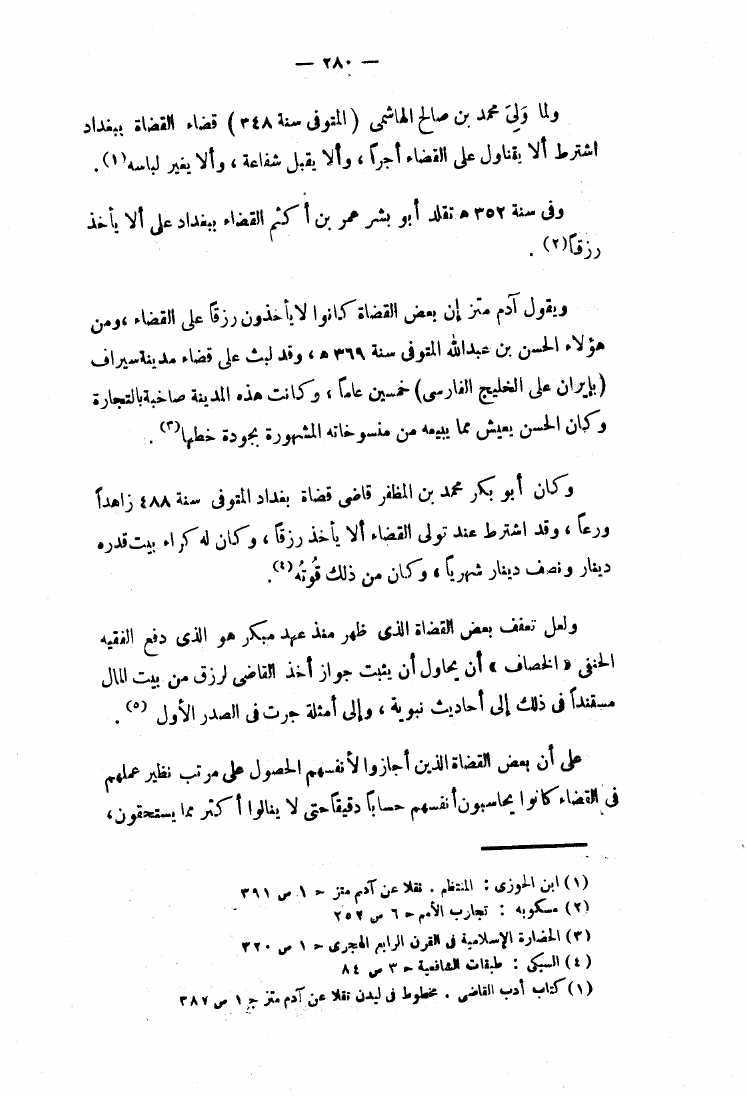 — ٢٨٠ —
ولما وَلِيَ محمد بن صالح الهاشمى (المتوفى سنة ٣٤٨) قضاء القضاة ببغداد
اشترط ألا يتناول على القضاء أجراً ، وألا يقبل شفاعة ، وألا يغير لباسه(١) .
وفى سنة ٣٥٢ هـ تقلد أبو بشر عمر بن أكثم القضاء ببغداد على ألا يأخذ
رزقاً(٢) .
ويقول آدم متز إن بعض القضاة كانوا لا يأخذون رزقاً على القضاء ، ومن
هؤلاء الحسن بن عبدالله المتوفى سنة ٣٦٩ هـ ، وقد لبث على قضاء مدينة سيراف
(بإيران على الخليج الفارسى) خمسين عاماً ، وكانت هذه المدينة صاخبة بالتجارة
وكان الحسن يعيش مما يبيعه من منسوخاته المشهورة بجودة خطها(٣) .
وكان أبو بكر محمد بن المظفر قاضى قضاة بغداد المتوفى سنة ٤٨٨ زاهداً
ورعاً ، وقد اشترط عند تولى القضاء ألا يأخذ رزقاً ، وكان له كراء بيت قدره
دينار ونصف دينار شهرياً ، وكان من ذلك قُوتُه(٤) .
ولعل تعفف بعض القضاة الذى ظهر منذ عهد مبكر هو الذى دفع الفقيه
الحنفى « الخصاف » أن يحاول أن يثبت جواز أخذ القاضى لرزق من بيت المال
مستنداً فى ذلك إلى أحاديث نبوية ، وإلى أمثلة جرت فى الصدر الأول (٥) .
على أن بعض القضاة الذين أجازوا لأنفسهم الحصول على مرتب نظير عملهم
فى القضاء كانوا يحاسبون أنفسهم حساباً دقيقاً حتى لا ينالوا أكثر مما يستحقون ،
(١) ابن الجوزى : المنتظم . نقلا عن آدم متز حـ ١ ص ٣٩١
(٢) مسكويه : تجارب الأمم حـ ٦ ص ٢٥٧
(٣) الحضارة الإسلامية فى القرن الرابع الهجرى حـ ١ ص ٣٢٠
(٤) السبكى : طبقات الشافعية حـ ٣ ص ٨٤
(١) كتاب أدب القاضى . مخطوط فى ليدن نقلا عن آدم متز جـ ١ ص ٣٨٧